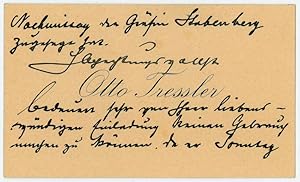 Nachmittag der Gräfin Stubenberg
zugesagt hat.
Hochachtungsvollst
Otto Tressler
bedauert sehr von Ihrer liebens-
würdigen Einladung keinen Gebrauch
machen zu können, da er Sonntag